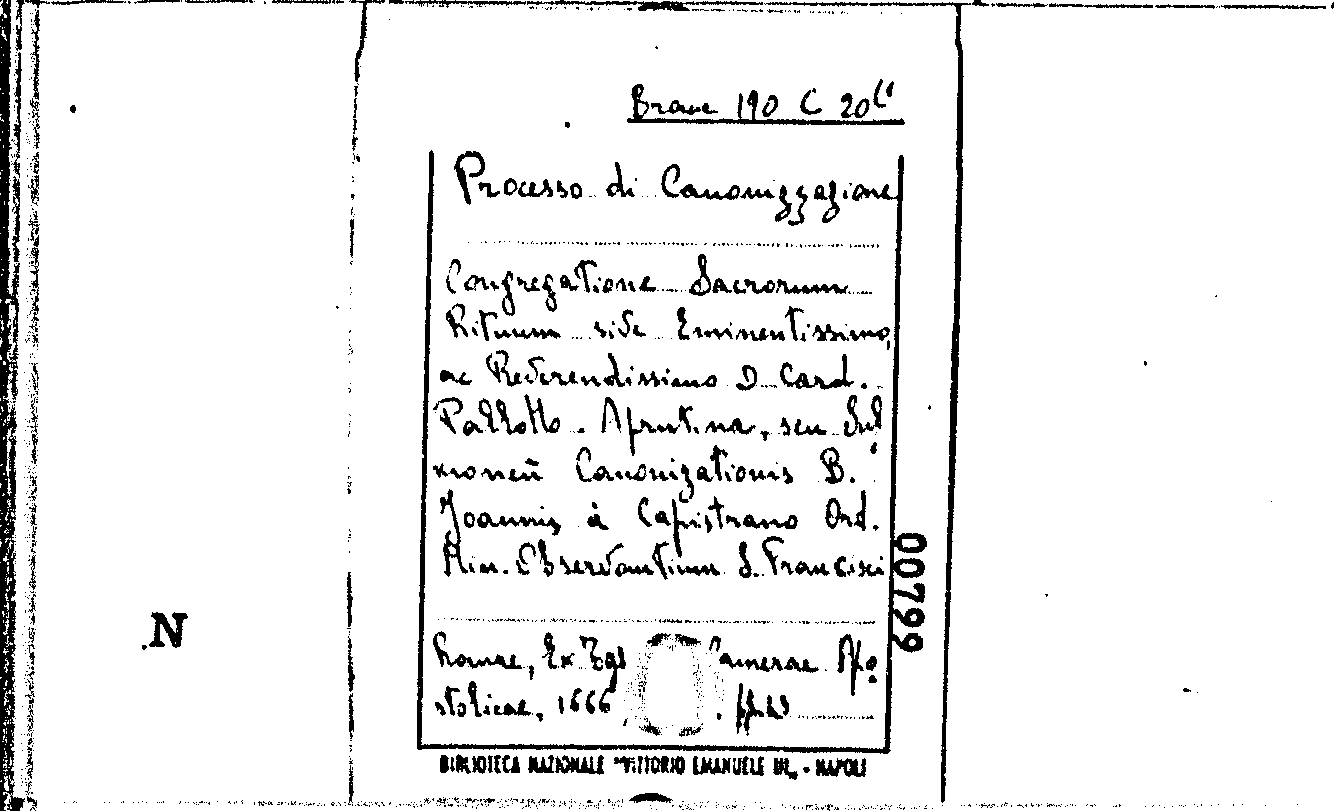 Branc 190 C 20
Processo di Canonizzazione
Congregatione Sacrorum
Rituum sive Eminentissimo,
ac Reverendissimo D. Card.
Pallotto. Aprutina, seu Sul
monen̄ Canonizationis B.
Joannis à Capistrano Ord.
Min. Observantium S. Francisci
Romae, Ex Typ Camerae Apo
stolicae, 1666
00799
N
BIBLIOTECA NAZIONALE "VITTORIO EMANUELE III" - NAPOLI